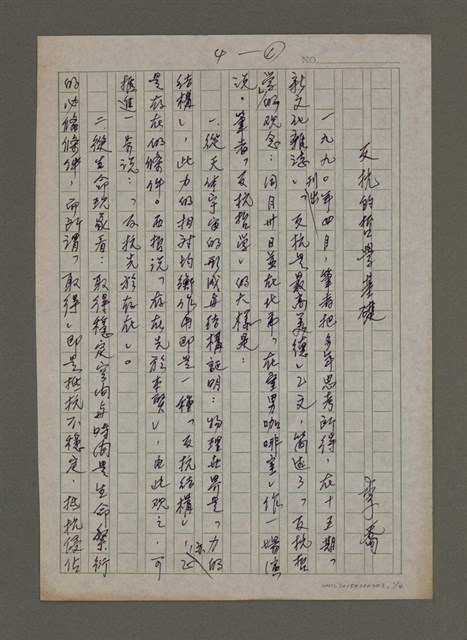 4—①
NO.
反抗的哲學基礎
李喬
一九九○年四月,筆者把多年思考所得,在十五期「
新文化雜誌」刊出「反抗是最高美德」乙文,簡述了「反抗哲
學」的观念;同月卅日並在北市「在室男咖啡室」作一場演
說。筆者「反抗哲學」的大樣是:
一、從天体宇宙的形成與結構証明:物理世界是「力的
結構」,此力的相对均衡作用即是一種「反抗結構」,
是存在的條件。西哲說「存在先於本質」,由此观之,可
推進一步說:「反抗先於存在」。
二、從生命現象看:取得穩定空间與時间是生命繁衍
的必備條件,而所謂「取得」即是抵抗不穩定,抵抗侵佔